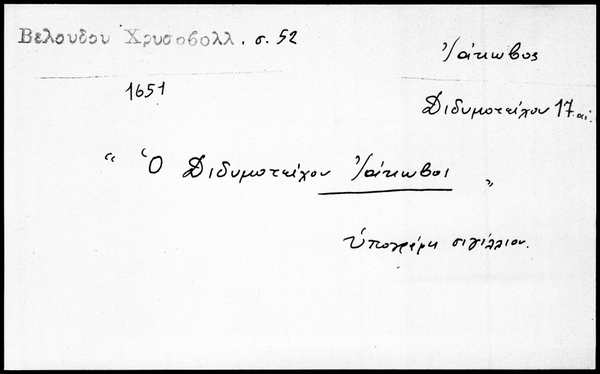 Βελουδου Χρυσοβολλ. σ. 52
Ἰάκωβος
1651
Διδυμοτείχου 17 αἰ.
“ Ὁ Διδυμοτείχου Ἰάκωβος „
ὑπογράφει σιγίλλιον.